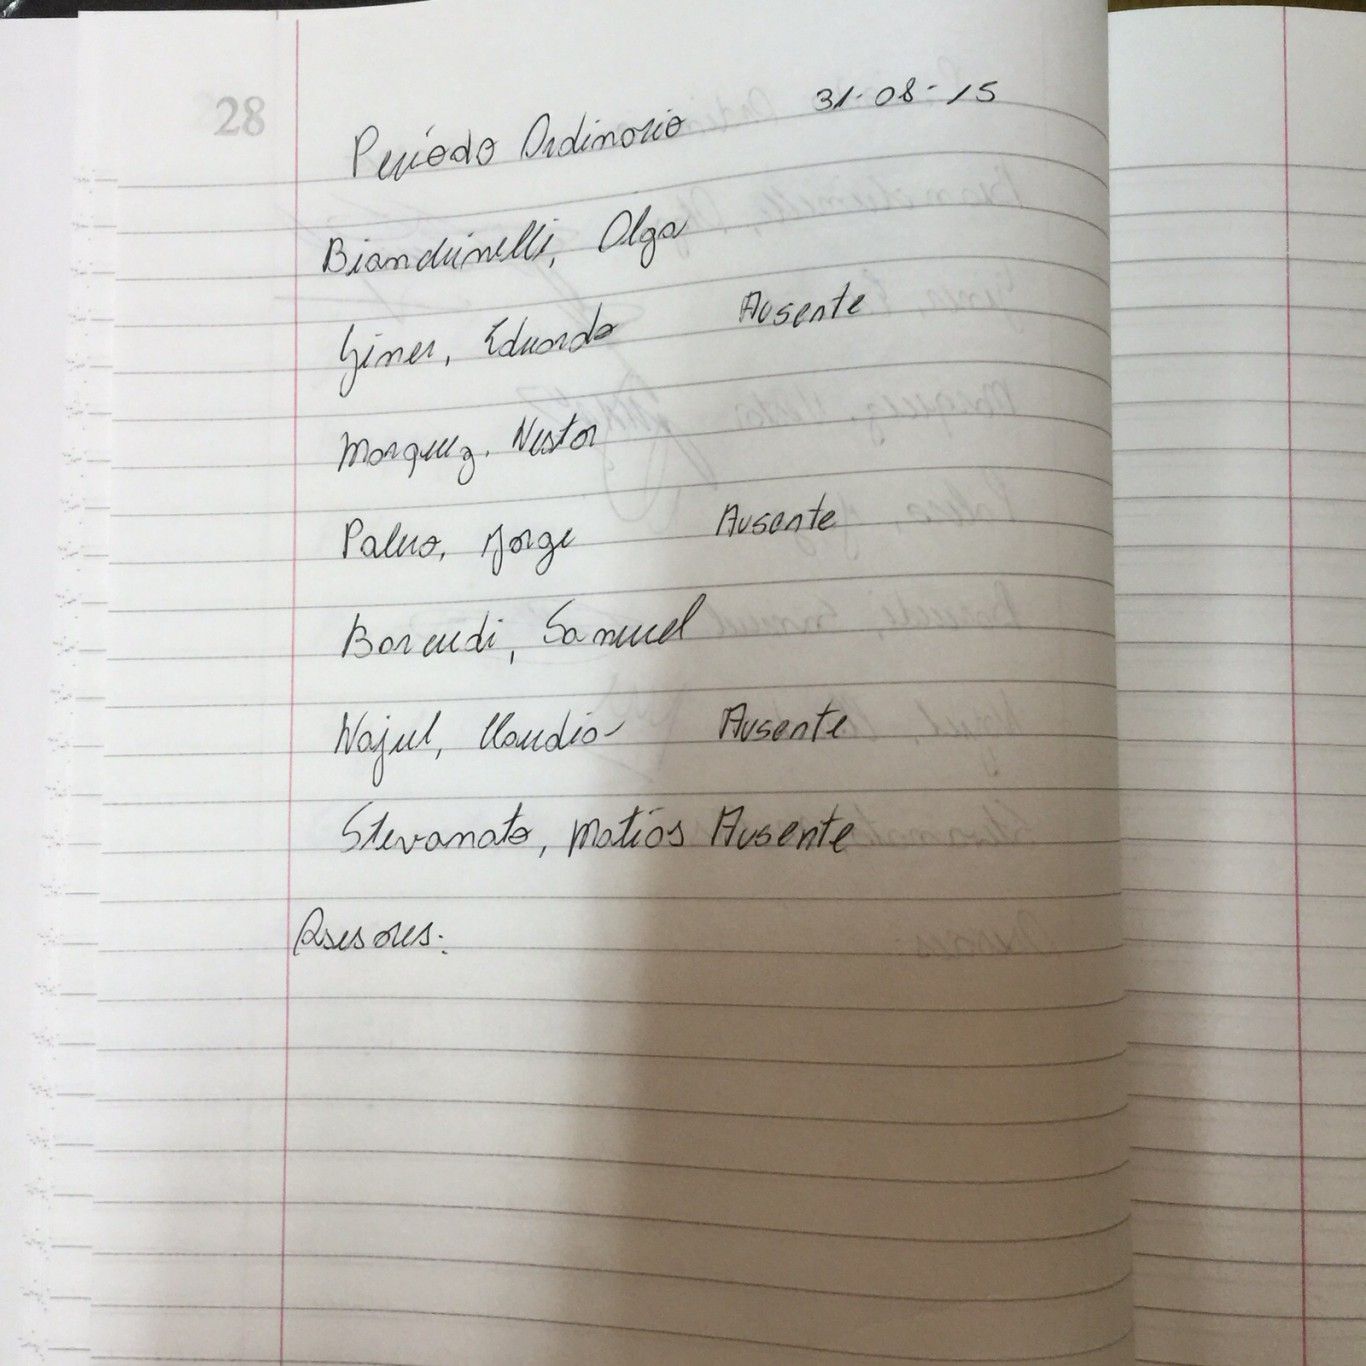 28
Período Ordinario 31-08-15
Bianchinelli, Olga
Giner, Eduardo Ausente
Marquez, Nestor
Palero, Jorge Ausente
Boreudi, Samuel
Najul, Claudio Ausente
Stevanato, Matías Ausente
Asesores: